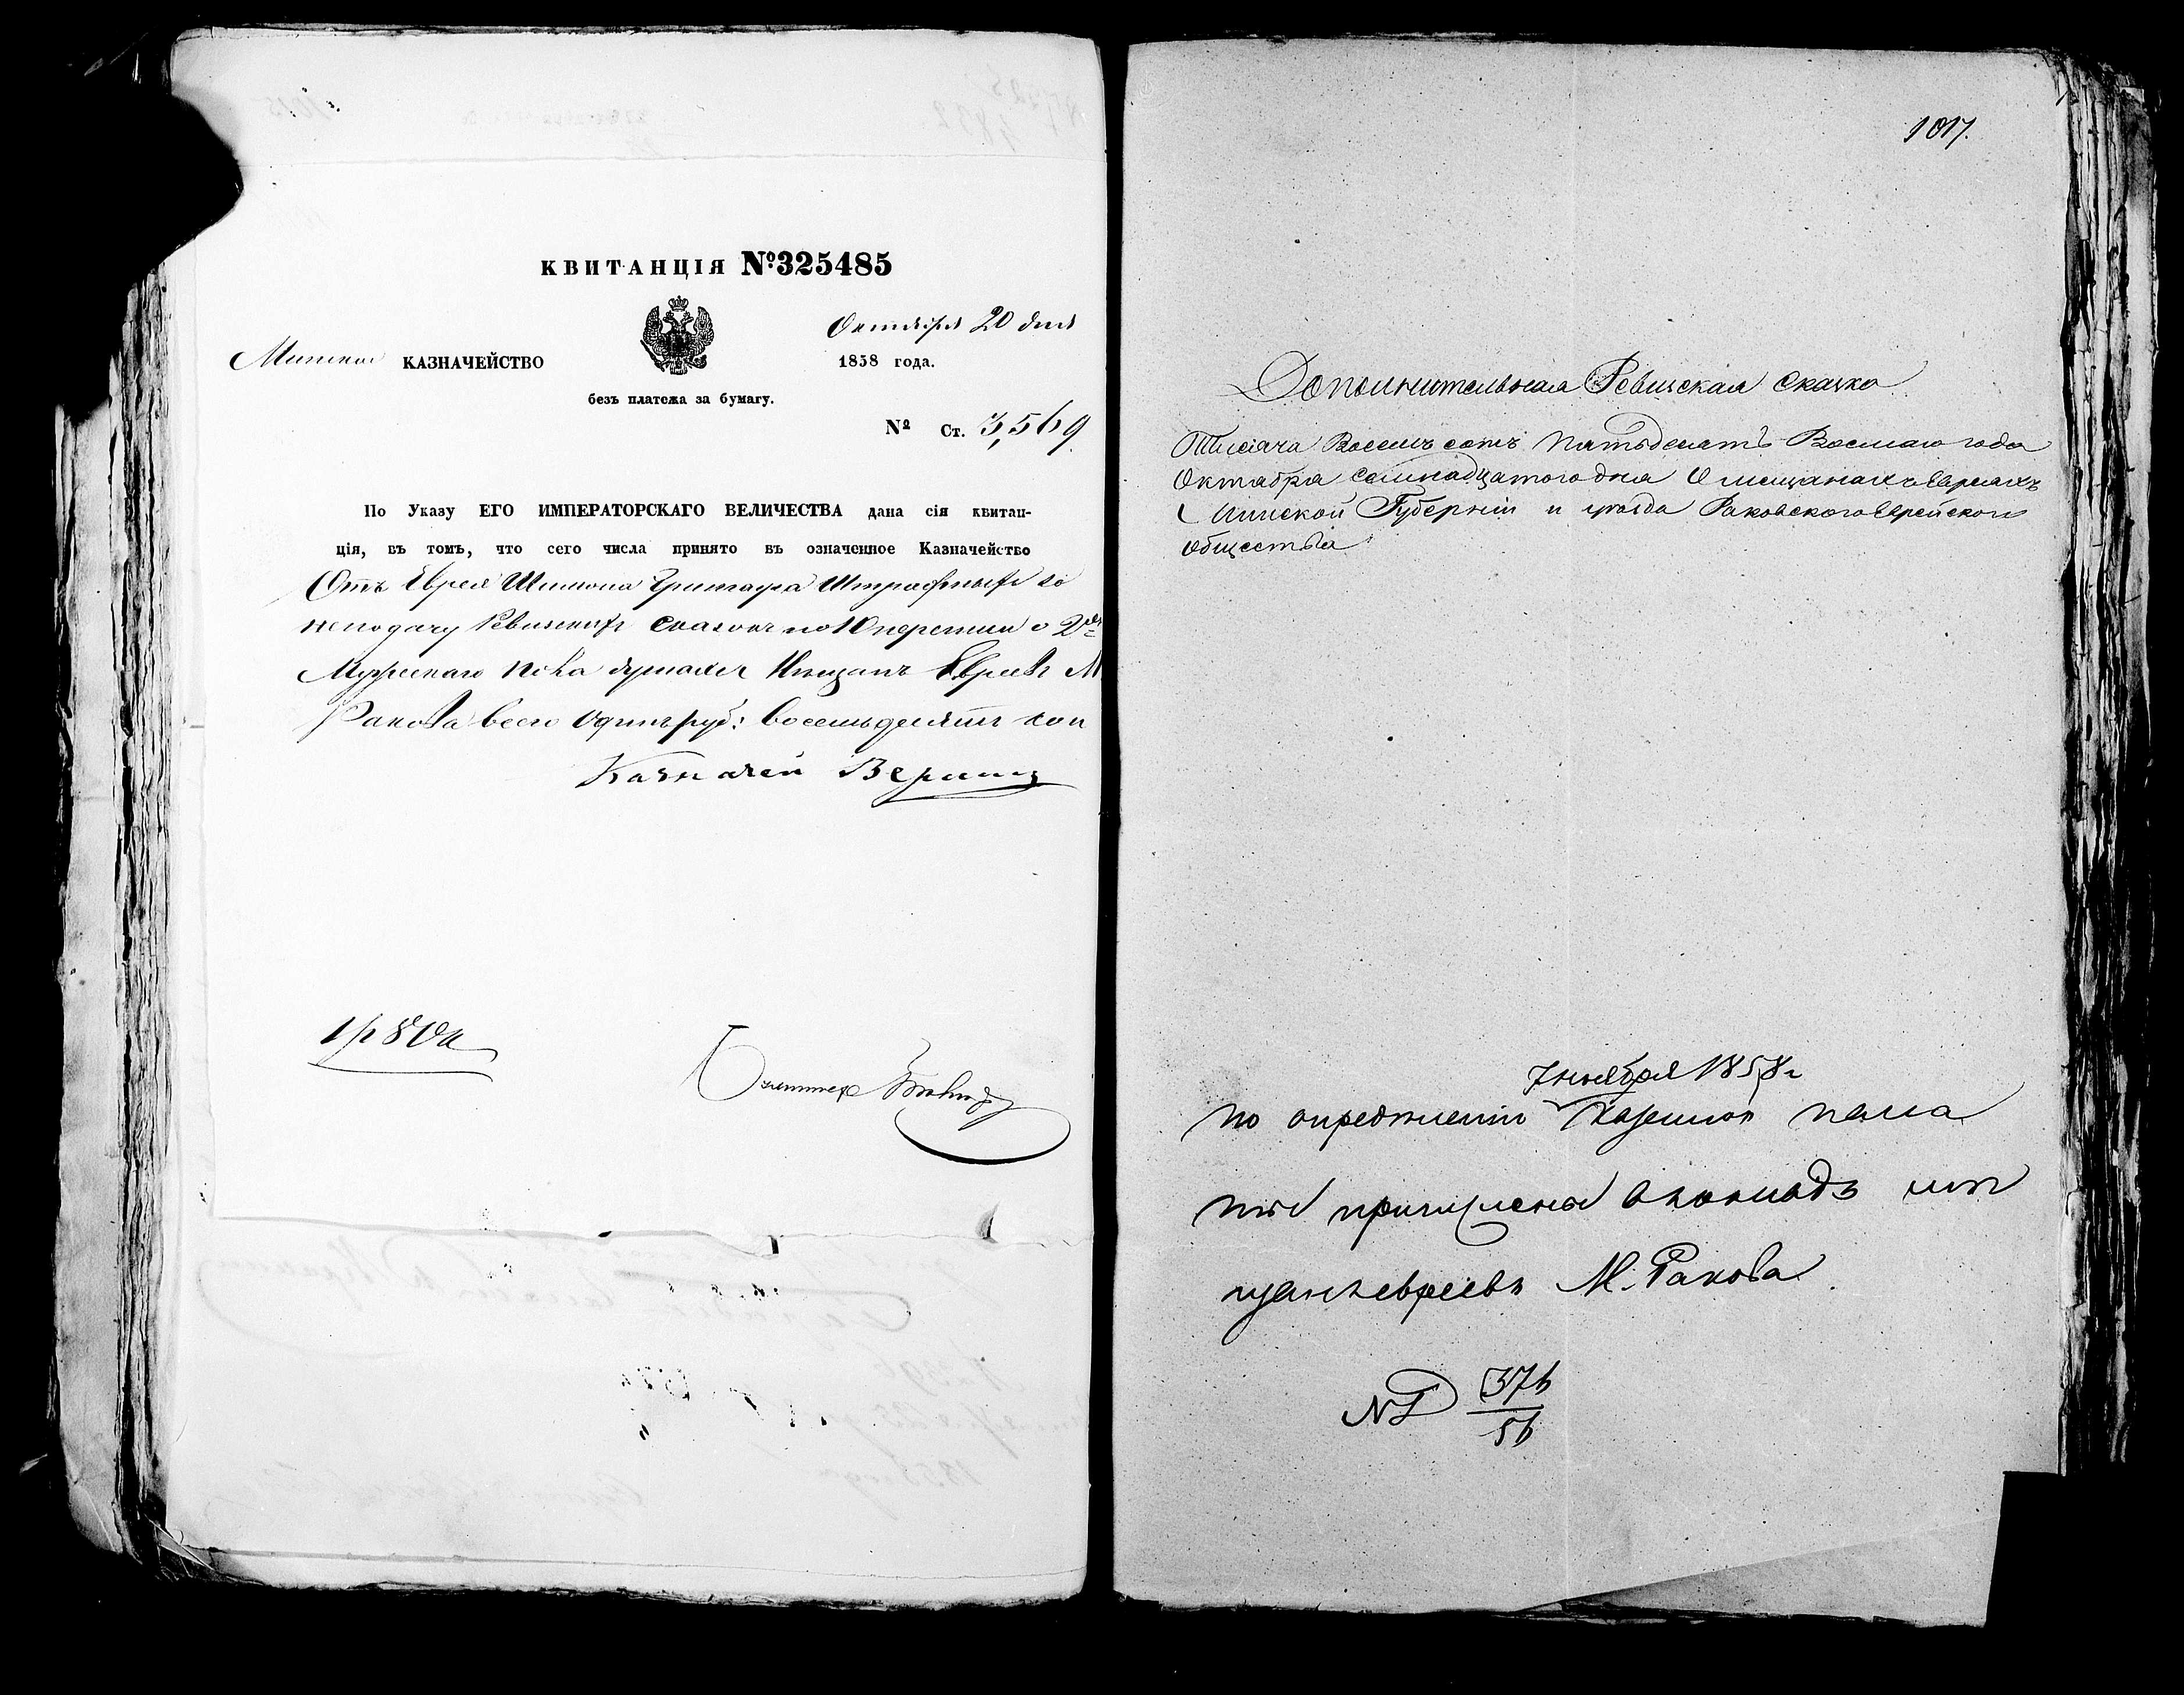 КВИТАНЦІЯ №325485
Октября 20 дня
Минское КАЗНАЧЕЙСТВО
1858 года.
безъ платежа за бумагу.
№ Ст. 3,569.
По Указу ЕГО ИМПЕРАТОРСКАГО ВЕЛИЧЕСТВА дана сія квитан-
ція, въ томъ, что сего числа принято въ означенное Казначейство
Отъ Еврея Шимона Штрафныхъ за
неподачу Ревизскихъ Сказокъ по 10 переписи о 2хъ
Мужескаго пола душахъ Мещанъ Евреевъ М
Ракова всего Одинъ руб: восемьдесятъ коп
Казначей
1 р 80 к
Бухгалтер
1017.
Дополнительная Ревизская Сказка
Тысяча Восемъ сотъ Пятьдесятъ Восмаго года
Октабра семнадцатого дня О мещанахъ евреахъ
Минской Губерніи и уезда Раковского Еврейского
общества
7 ноября 1858 г
По определенію Казенной пала
ты причислены в окладъ ме
щанъ евреевъ М. Ракова.
376
56